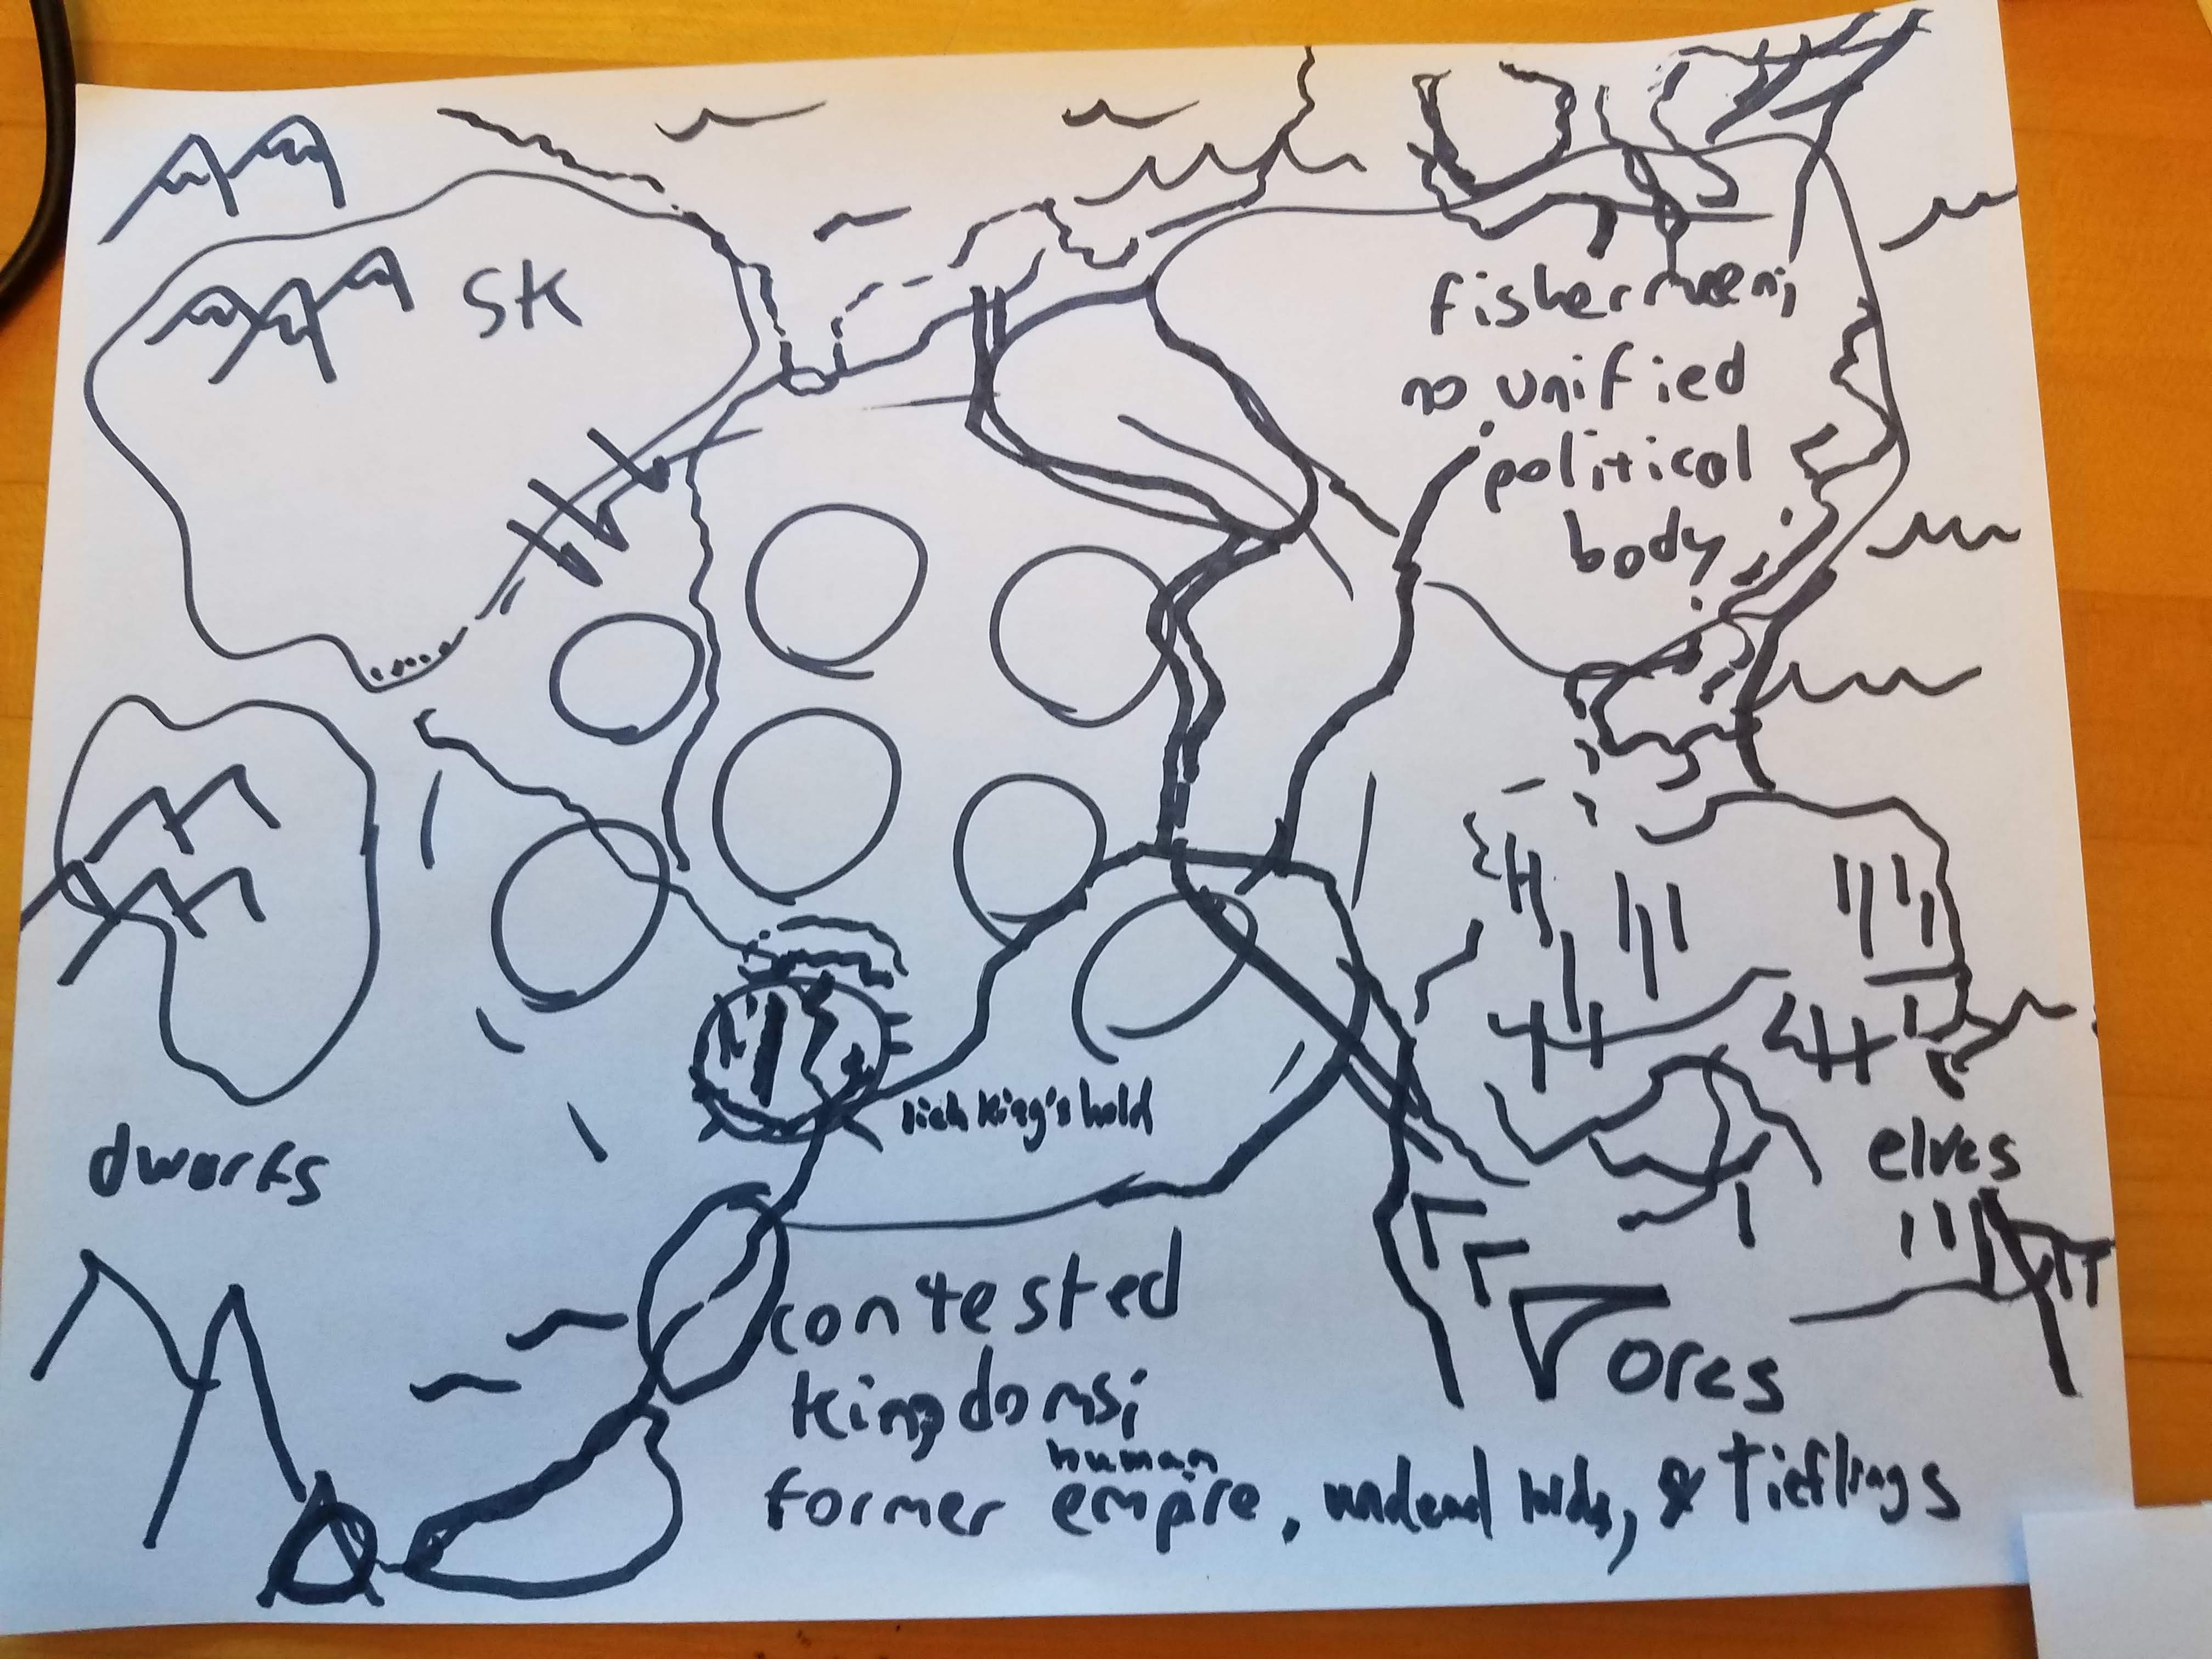 SK
fishermen;
no unified
political
body
lich king's hold
dwarfs
elves
contested
kingdoms;
orcs
human
former empire, undead lords, & Tieflings